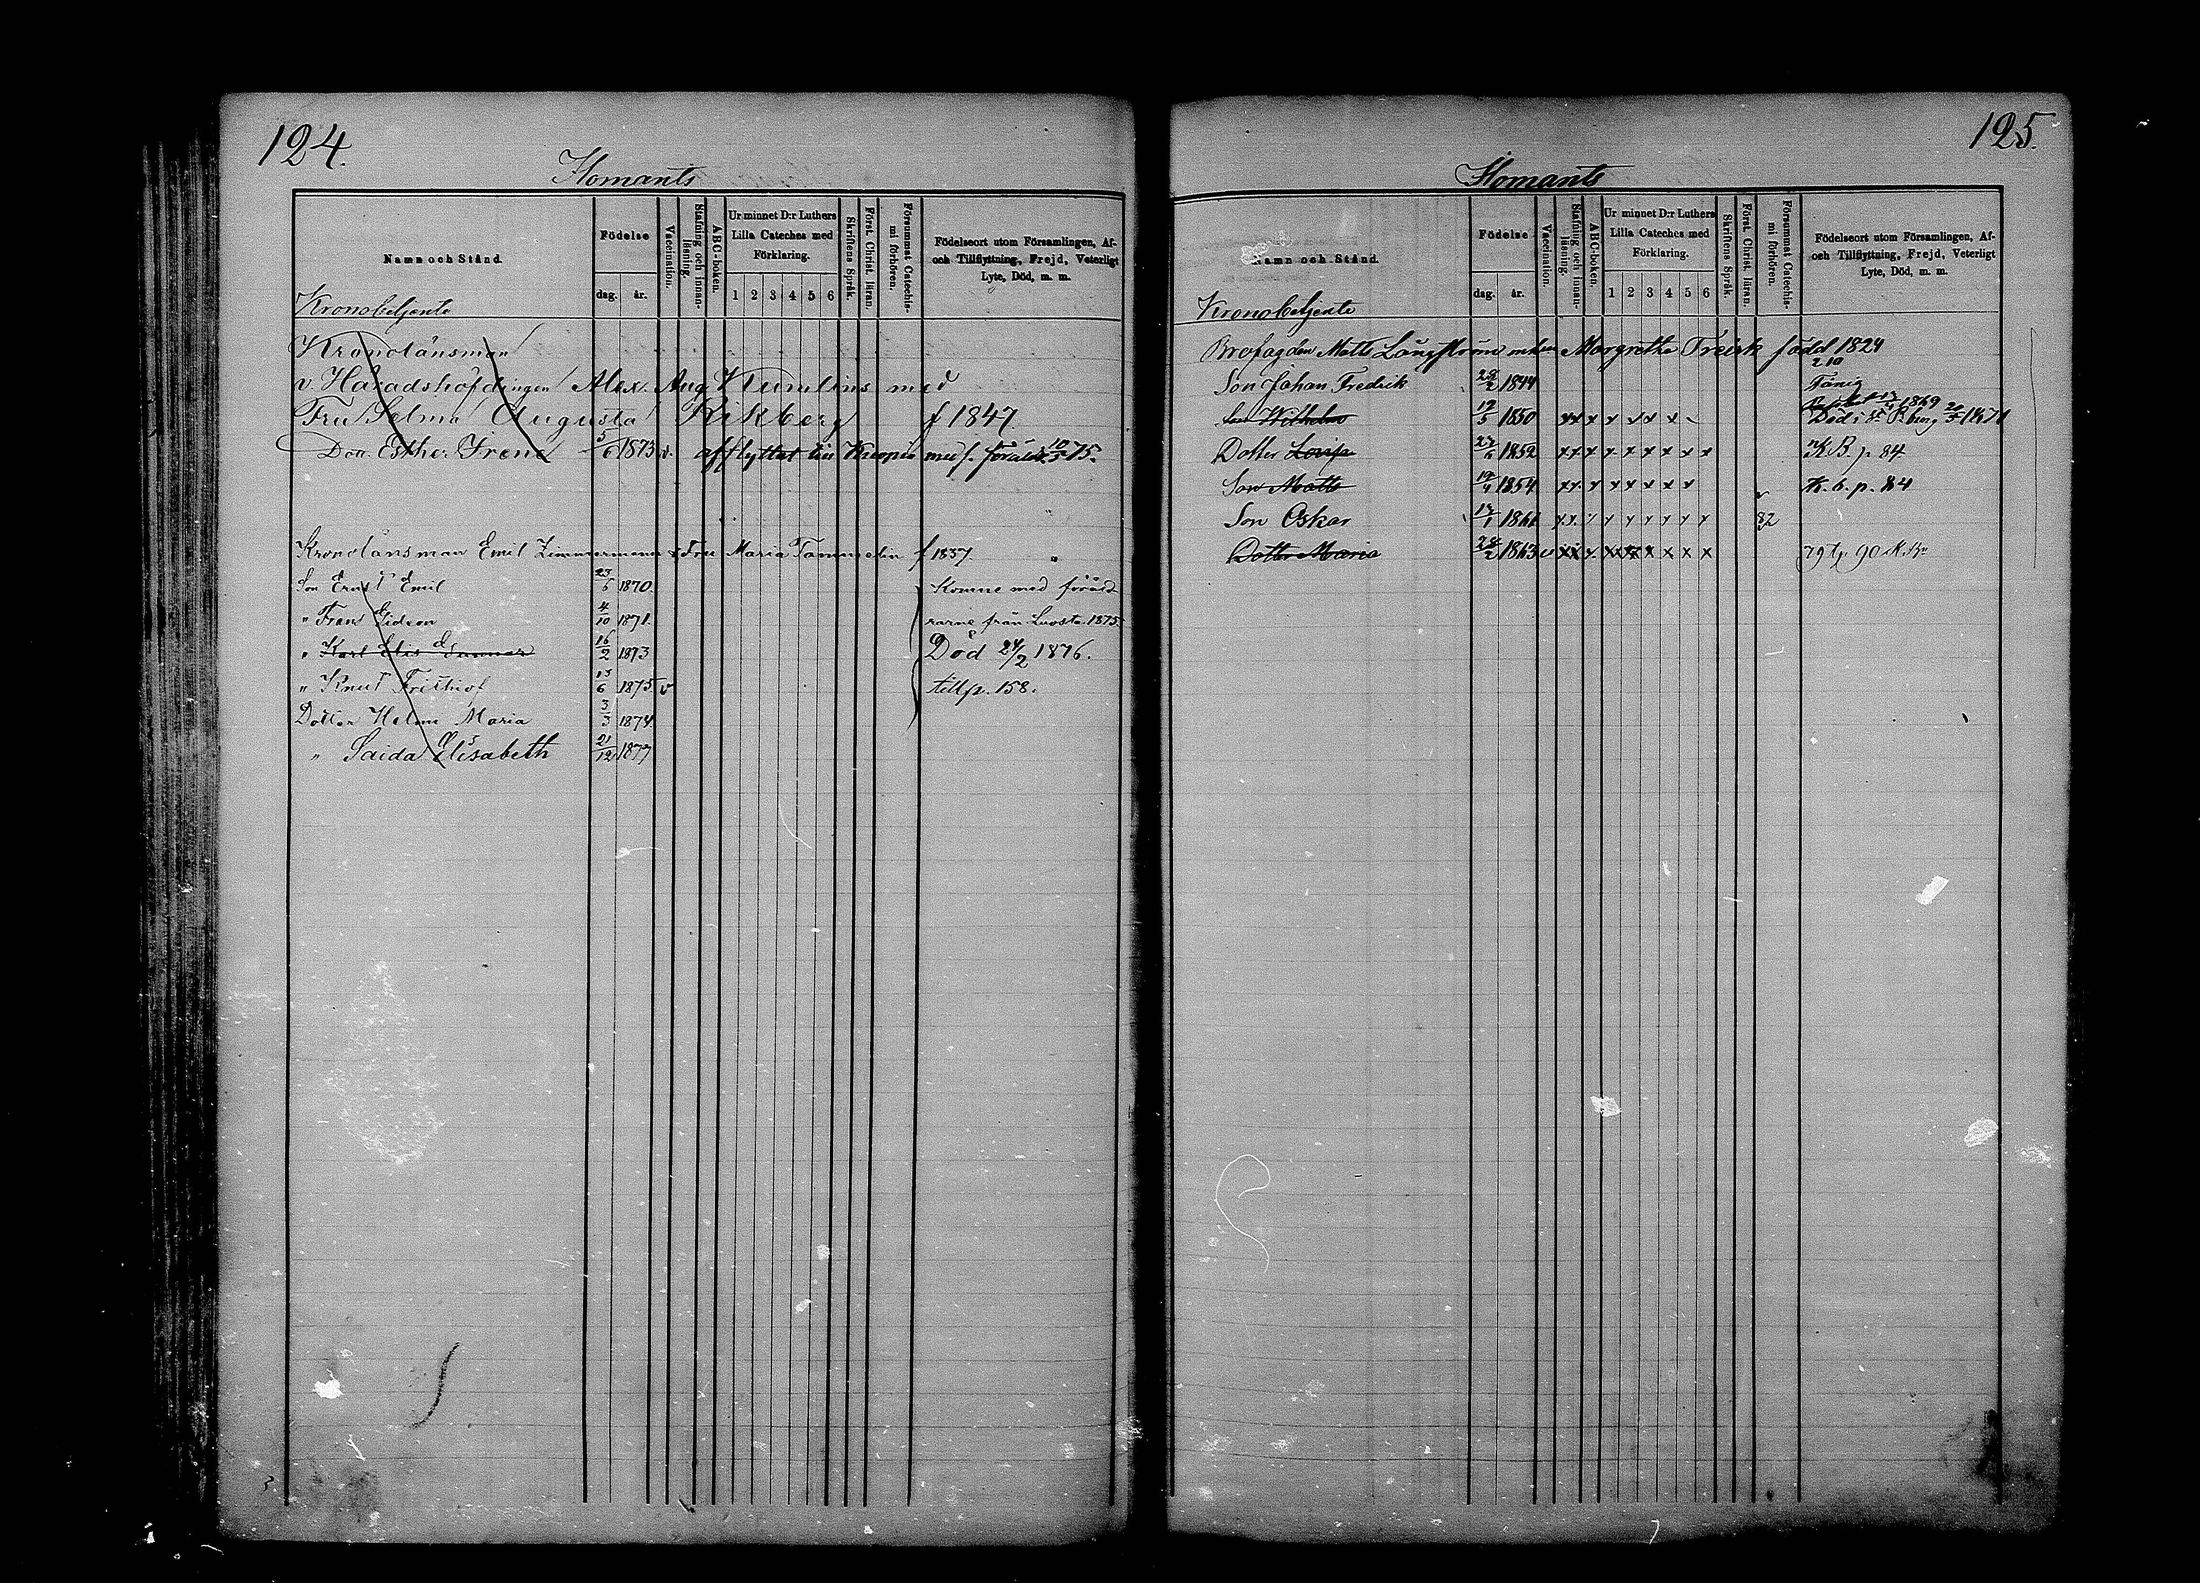 124.
Homants
Namn och Stånd.
Födelse
dag. år.
Vaccination.
Stafning och innanläsning.
ABC-boken.
Ur minnet D:r Luthers Lilla Cateches med Förklaring.
1 2 3 4 5 6
Skriftens Språk.
Först. Christ. läran.
Försummat Catechismi förhören.
Födelseort utom Församlingen, Af- och Tillflyttning, Frejd, Veterligt Lyte, Död, m. m.
Kronobetjente
Kronolänsman
v. Häradshöfdingen Alex. Aug. Kumlins med
Fru Selma Augusta Rikberg f 1847.
Dott. Esther Irene 5/6 1873 v. afflyttat till Kuopio med s. föräld. 10/3 75.
Kronolänsman Emil Zimmermann & Fru Maria Tammelin f 1837.
Son Ernst Emil 23/6 1870. Komne med föräld-
" Frans Gideon 4/10 1871. rarne från 1875.
" Karl Elis Gunnar 16/2 1873 Död 24/2 1876.
" Knut Frithiof 13/6 1875 v till p. 158.
Dotter Helmi Maria 3/3 1874.
" Saida Elisabeth 21/12 1877
125.
Homants
Namn och Stånd.
Födelse
dag. år.
Vaccination.
Stafning och innanläsning.
ABC-boken.
Ur minnet D:r Luthers Lilla Cateches med Förklaring.
1 2 3 4 5 6
Skriftens Språk.
Först. Christ. läran.
Försummat Catechismi förhören.
Födelseort utom Församlingen, Af- och Tillflyttning, Frejd, Veterligt Lyte, Död, m. m.
Kronobetjente
Brofogden Matts Långström Margretha född 1824
Son Johan Fredrik 28/2 1844
Son Wilhelm 19/5 1850 x x x x x x x Död i 1871
Dotter Lovisa 1852 x x x x x x x x x K B. p. 84.
Son Matts 19/4 1854 x x x x x x x x K. b. p. 84
Son Oskar 1861 x x x x x x x x x 82
Dotter Maria 28/2 1863 v x x x x x x x x x